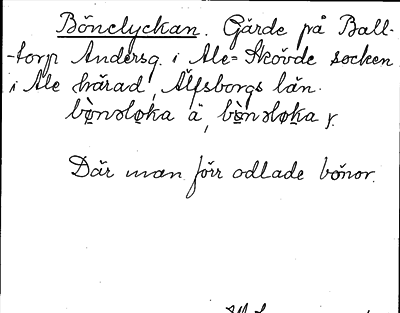 Böneluckan. Gärde på Ball-
-torp Andersg. i Ale-Skövde socken
i Ale härad, Älfsborgs län.
ä, y.
Där man förr odlade bönor.